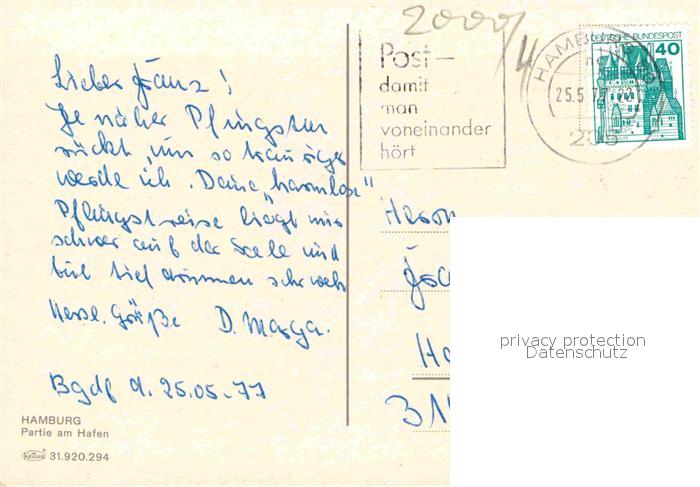 2000/
Post–
damit
man
voneinander
hört
HAMBURG
25.5.77
205
DEUTSCHE BUNDESPOST
40
Lieber Franz!
Je näher Pfingsten
rückt, um so trauriger
werde ich. Deine "harmlose"
Pfingstreise liegt mir
schwer auf der Seele und
tut tief drinnen sehr weh
Herzl. Grüße D. Marga.
Bgdf d. 25.05.77
Herrn
privacy protection
Datenschutz
HAMBURG
Partie am Hafen
Krüger 31.920.294